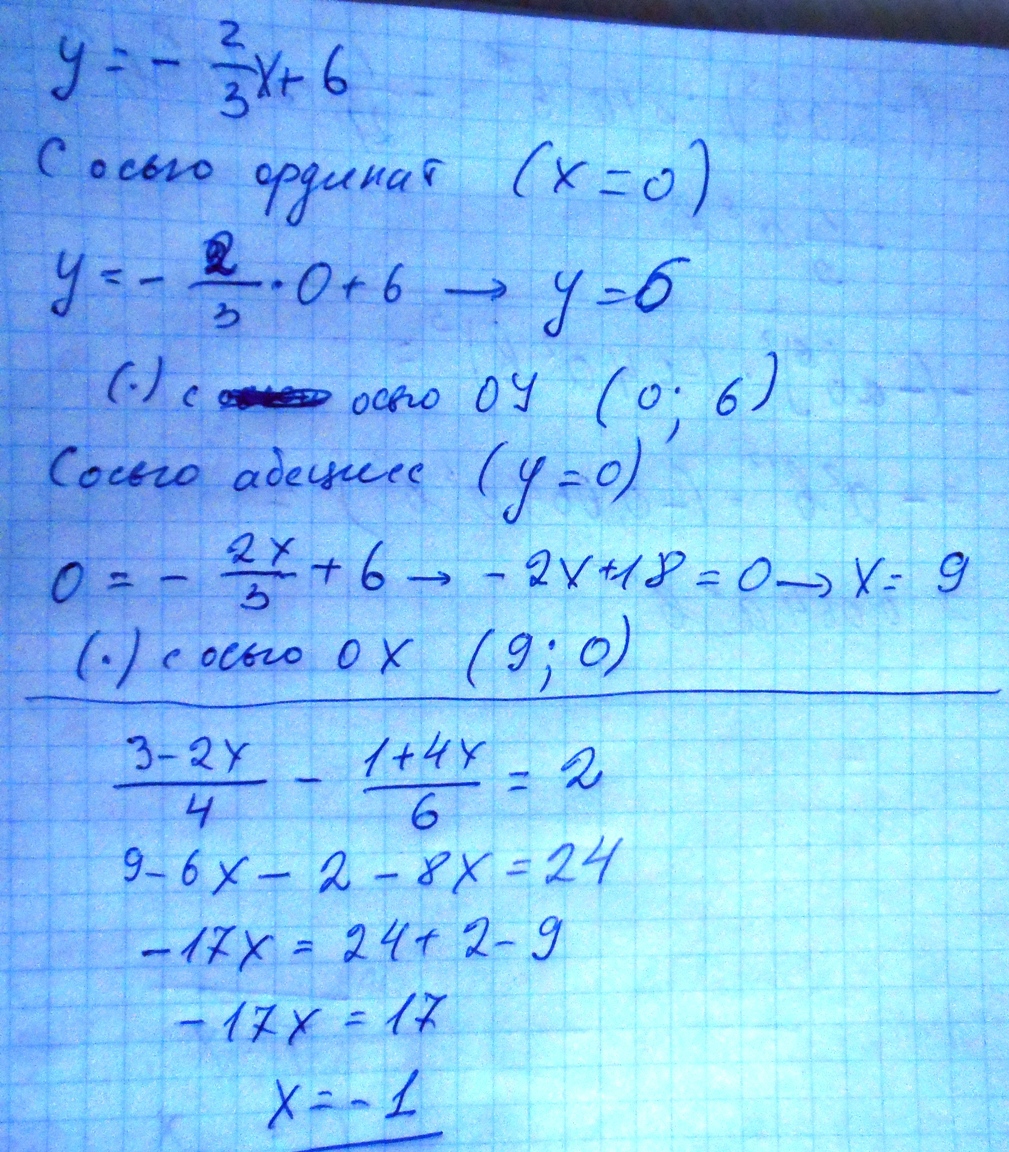 y = - 2/3 x + 6
С осью ординат (x = 0)
y = - 2/3 · 0 + 6 → y = 6
(·) с осью ОУ (0; 6)
С осью абсцисс (y = 0)
0 = - 2x/3 + 6 → - 2x + 18 = 0 → x = 9
(·) с осью ОХ (9; 0)
3 - 2x/4 - 1 + 4x/6 = 2
9 - 6x - 2 - 8x = 24
- 17x = 24 + 2 - 9
- 17x = 17
x = - 1